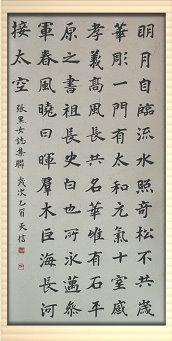 明月自臨流水照奇松不共歲
華彫一門有太和元氣十室感
孝義高風長共名華堆有石平
原之書祖長史白也所邁叅
軍春風曉日暉羣木巨海長河
接太空
張黑女誌集聯 歲次乙酉 天信